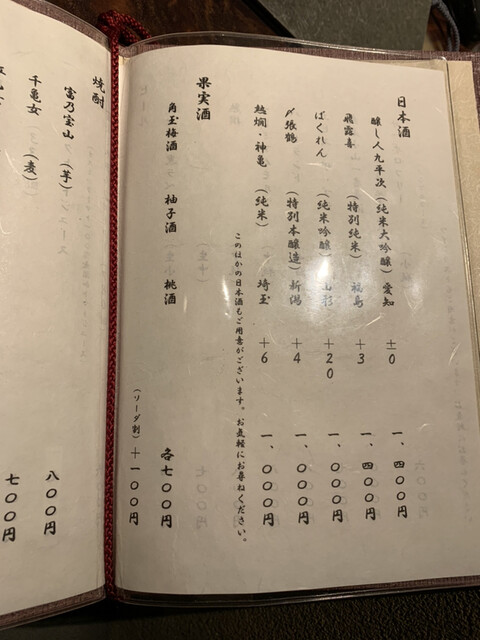 日本酒
醸し人九平次 (純米大吟醸) 愛知 ±0 一、四〇〇円
飛露喜 (特別純米) 福島 +3 一、四〇〇円
ばくれん (純米吟醸) 山形 +20 一、〇〇〇円
〆張鶴 (特別本醸造) 新潟 +4 一、〇〇〇円
熱燗・神亀 (純米) 埼玉 +6 一、〇〇〇円
このほかの日本酒もご用意がございます。お気軽にお尋ねください。
果実酒
角玉梅酒 柚子酒 桃酒 各七〇〇円
(ソーダ割) +一〇〇円
焼酎
富乃宝山 (芋) 八〇〇円
千亀女 (麦) 七〇〇円